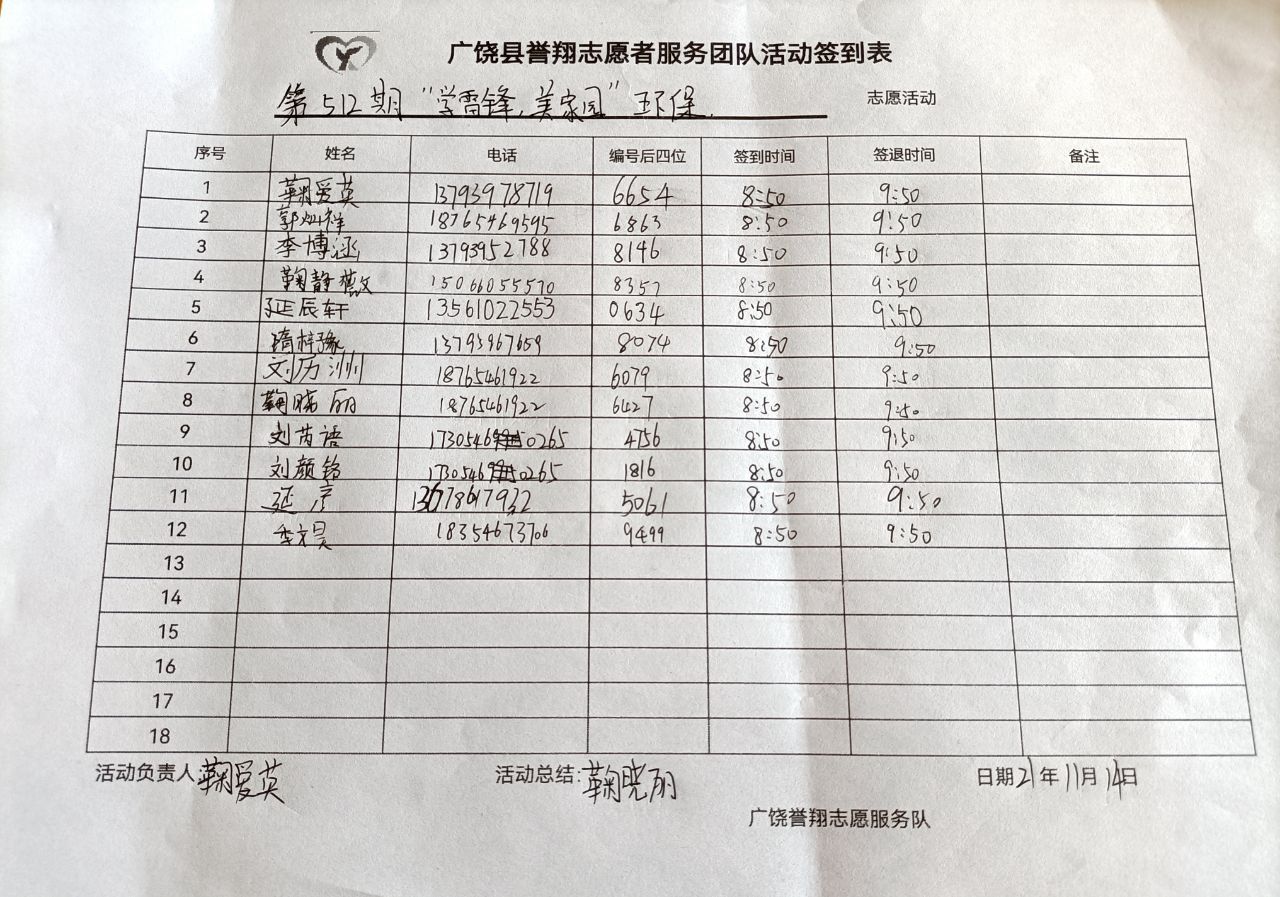 广饶县誉翔志愿者服务团队活动签到表
第512期"学雷锋,美家园"环保. 志愿活动
序号 姓名 电话 编号后四位 签到时间 签退时间 备注
1 鞠爱英 13793978719 6654 8:50 9:50
2 郭灿祥 18765469595 6863 8:50 9:50
3 李博涵 13793952788 8146 8:50 9:50
4 鞠静薇 15066055570 8357 8:50 9:50
5 延辰轩 13561022553 0634 8:50 9:50
6 隋梓豫 13793967659 8074 8:50 9:50
7 刘历洲 18765461922 6079 8:50 9:50
8 鞠晓丽 18765461922 6427 8:50 9:50
9 刘芮语 17305460265 4756 8:50 9:50
10 刘颜铭 17305460265 1816 8:50 9:50
11 延彦 13678617932 5061 8:50 9:50
12 季文昊 18354673706 9499 8:50 9:50
13
14
15
16
17
18
活动负责人 鞠爱英 活动总结: 鞠晓丽 日期21年11月14日
广饶誉翔志愿服务队